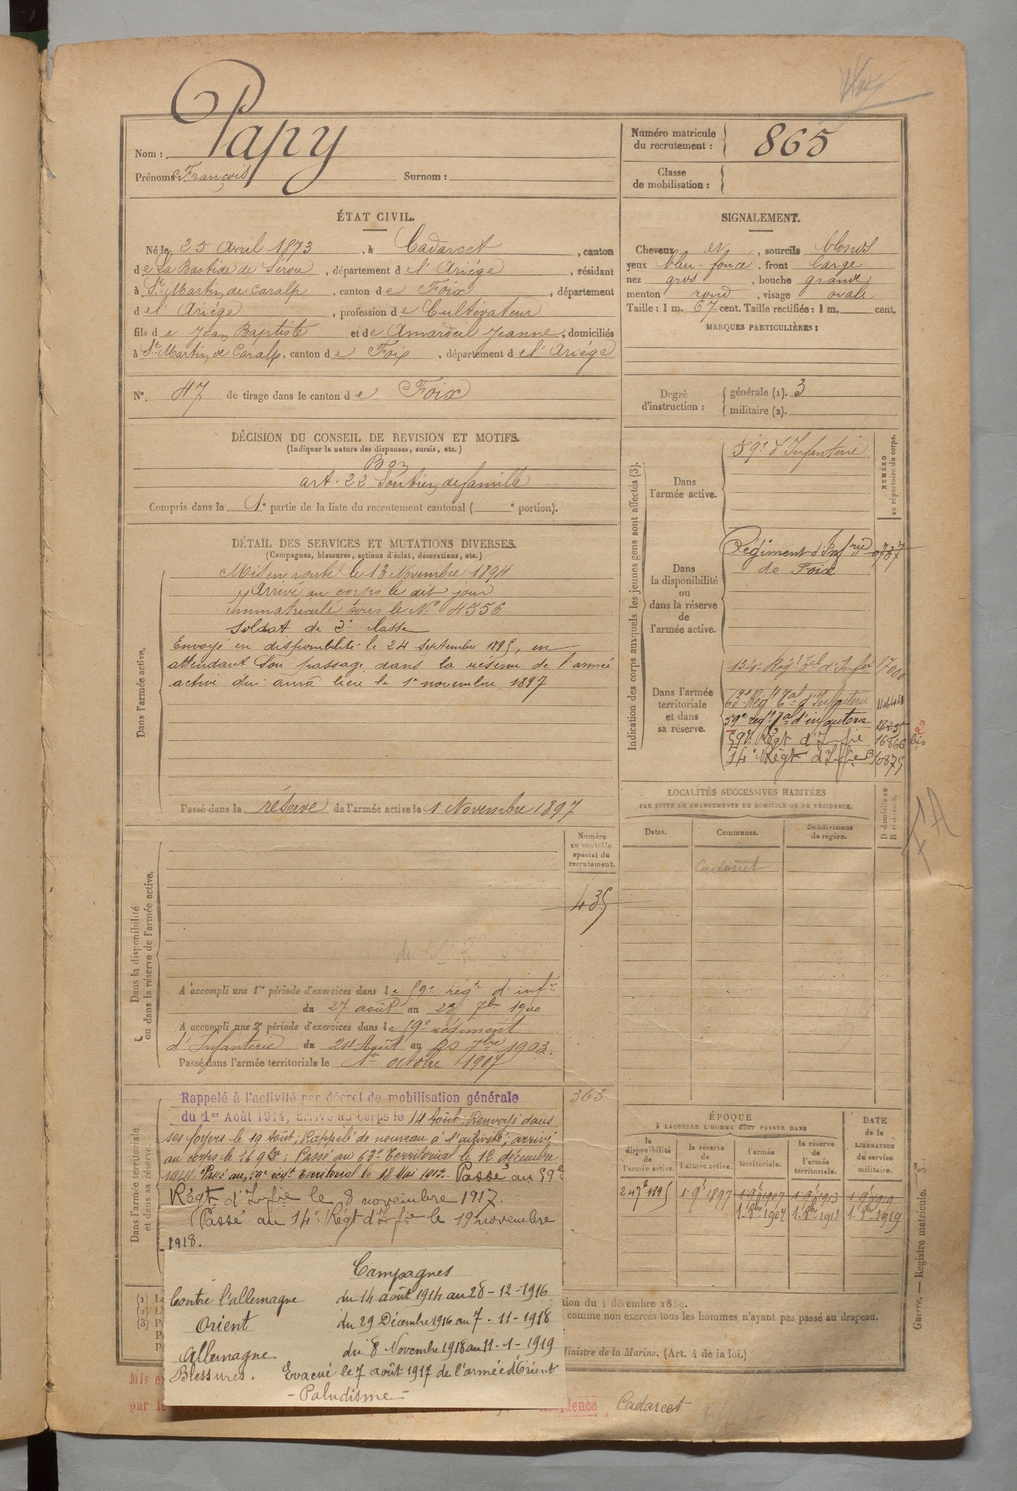 Nom : Papy
Prénoms : François Surnom :
Numéro matricule du recrutement : 865
Classe de mobilisation :
ÉTAT CIVIL.
Né le 25 Avril 1873, à Cadarcet, canton
de La Bastide de Sérou, département de l'Ariège, résidant
à St Martin de Caralp, canton de Foix, département
de l'Ariège, profession de Cultivateur
fils de Jean Baptiste et de Amardeil Jeanne, domiciliés
à St Martin de Caralp, canton de Foix, département de l'Ariège
N° 47 de tirage dans le canton de Foix
SIGNALEMENT.
Cheveux et, sourcils blonds
yeux bleu-foncé, front large
nez gros, bouche grande
menton rond, visage ovale
Taille : 1 m. 67 cent. Taille rectifiée : 1 m. cent.
MARQUES PARTICULIÈRES :
Degré d'instruction : générale (1). 3
militaire (2).
DÉCISION DU CONSEIL DE REVISION ET MOTIFS.
(Indiquer la nature des dispenses, sursis, etc.)
Bon
art. 22 Soutien de famille
Compris dans la 1e partie de la liste du recrutement cantonal ( e portion).
DÉTAIL DES SERVICES ET MUTATIONS DIVERSES.
(Campagnes, blessures, actions d'éclat, décorations, etc.)
Dans l'armée active.
Mis en route le 13 Novembre 1894
Arrivé au corps le dit jour
immatriculé sous le N° 4356
Soldat de 2e classe
Envoyé en disponibilité le 24 septembre 1895, en
attendant son passage dans la réserve de l'armée
active qui aura lieu le 1er novembre 1897
Passé dans la réserve de l'armée active le 1 Novembre 1897
Indication des corps auxquels les jeunes gens sont affectés (3).
NUMÉRO au répertoire du corps.
Dans l'armée active.
59e d'Infanterie
Dans la disponibilité ou dans la réserve de l'armée active.
Régiment d'Infrie
de Foix
Dans l'armée territoriale et dans sa réserve.
134e Régt Tal d'Infie
63e Régt Tal d'Infanterie
59e régt Tal d'infanterie
59e Régt d'Infie 16866 bis
14e Régt d'Infie
LOCALITÉS SUCCESSIVES HABITÉES
PAR SUITE DE CHANGEMENTS DE DOMICILE OU DE RÉSIDENCE.
D domicile ou R résidence.
Dates. Communes. Subdivisions de région.
Cadarcet
Numéro au contrôle spécial du recrutement.
435
Dans la disponibilité ou dans la réserve de l'armée active.
A accompli une 1re période d'exercices dans le 59e régt d'infie
du 27 août au 23 7bre 1900
A accompli une 2e période d'exercices dans le 59e régiment
d'Infanterie du 24 Août au 20 7bre 1903.
Passé dans l'armée territoriale le 1er octobre 1907
363
Dans l'armée territoriale et dans sa réserve.
Rappelé à l'activité par décret de mobilisation générale
du 1er Août 1914, arrivé au corps le 14 août. Renvoyé dans
ses foyers le 19 août, Rappelé de nouveau à l'activité, arrivé
au corps le 16 9bre; Passé au 63e Territorial le 12 décembre
Passé au 59e
Régt d'Infie le 8 novembre 1917.
Passé au 14e Régt d'Infie le 19 novembre
1918.
ÉPOQUE
À LAQUELLE L'HOMME DOIT PASSER DANS
la disponibilité de l'armée active. la réserve de l'armée active. l'armée territoriale. la réserve de l'armée territoriale.
DATE de la LIBÉRATION du service militaire.
24 7e 1895 1 9e 1897 1 9e 1907 1 9e 1913 1 9e 1919
1 8bre 1907 1 8bre 1913 1 8bre 1919
Campagnes
Contre l'allemagne du 14 août 1914 au 28-12-1916
Orient du 29 Décembre 1916 au 7-11-1918
Allemagne du 8 Novembre 1918 au 11-1-1919
Blessures. Evacué le 7 août 1917 de l'armée d'Orient
- Paludisme -
comme non exercés tous les hommes n'ayant pas passé au drapeau.
Ministre de la Marine. (Art. 4 de la loi.)
Guerre. — Registre matricule.
Cadarcet